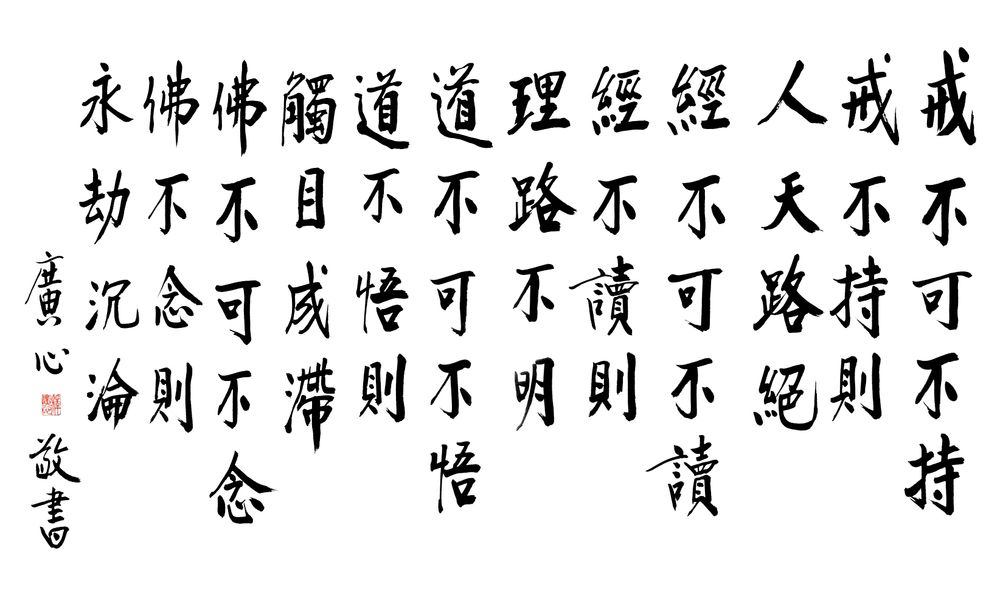 戒不可不持
戒不持則
人天路絕
經不可不讀
經不讀則
理路不明
道不可不悟
道不悟則
觸目成滯
佛不可不念
佛不念則
永劫沉淪
廣心
敬書